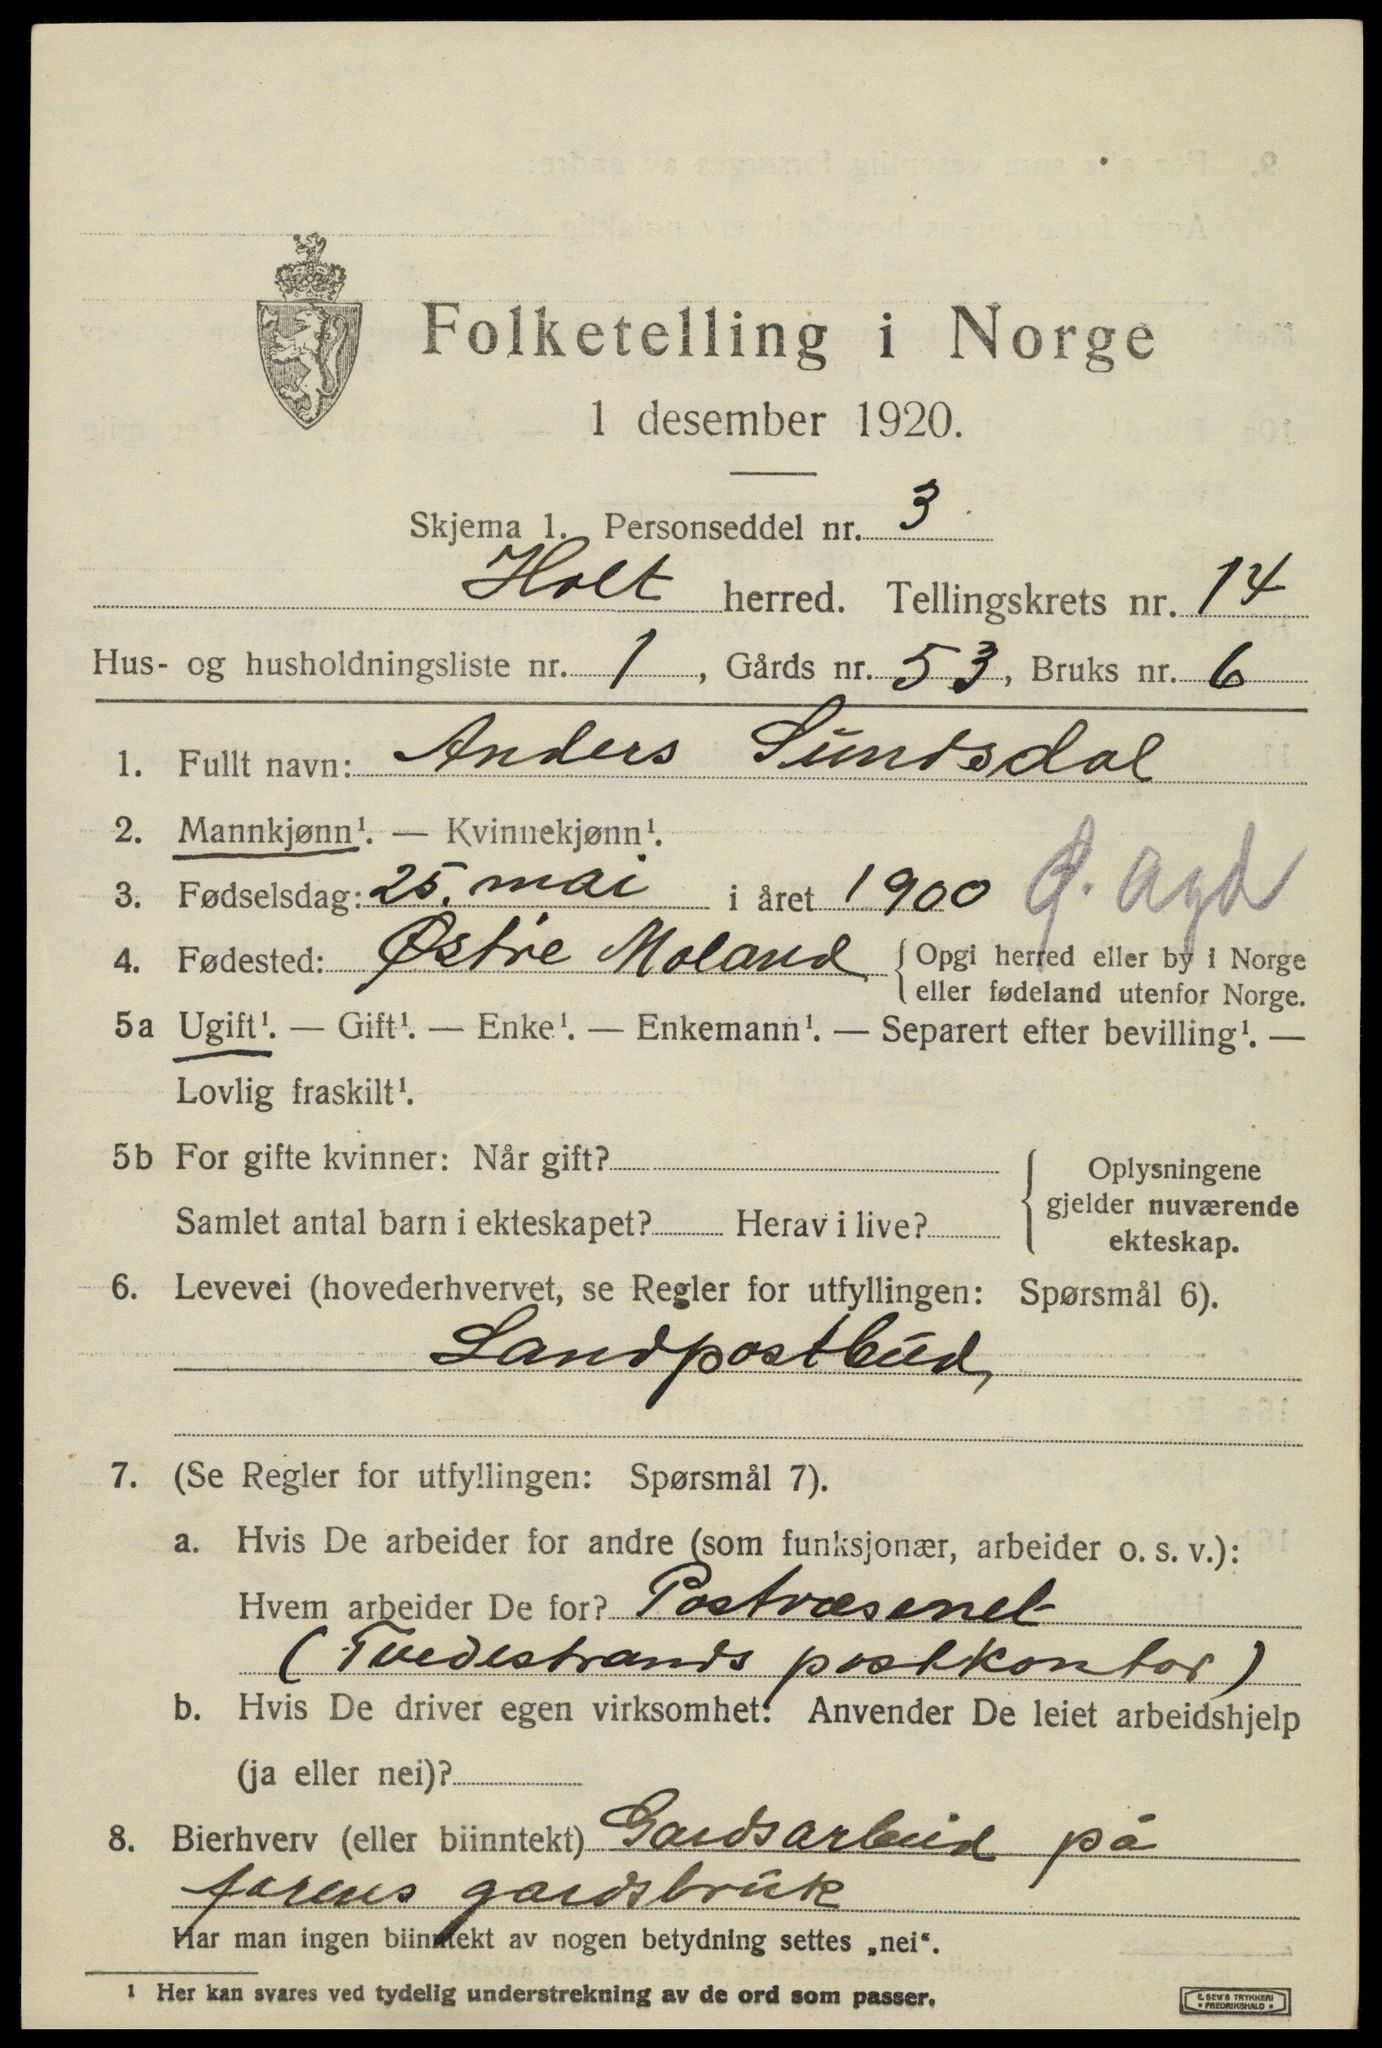 Folketelling i Norge
1 desember 1920.
Skjema 1. Personseddel nr. 3
Holt herred. Tellingskrets nr. 14
Hus- og husholdningsliste nr. 1, Gårds nr. 53, Bruks nr. 6
1. Fullt navn: Anders Sundsdal
2. Mannkjønn¹. — Kvinnekjønn¹.
3. Fødselsdag: 25. mai i året 1900 Ø. Agd
4. Fødested: Østre Moland { Opgi herred eller by i Norge
eller fødeland utenfor Norge.
5a Ugift¹. — Gift¹. — Enke¹. — Enkemann¹. — Separert efter bevilling¹. —
Lovlig fraskilt¹.
5b For gifte kvinner: Når gift?
Samlet antal barn i ekteskapet? Herav i live?
{ Oplysningene
gjelder nuværende
ekteskap.
6. Levevei (hovederhvervet, se Regler for utfyllingen: Spørsmål 6).
Landpostbud,
7. (Se Regler for utfyllingen: Spørsmål 7).
a. Hvis De arbeider for andre (som funksjonær, arbeider o. s. v.):
Hvem arbeider De for? Postvæsenet
(Tvedestrands postkontor)
b. Hvis De driver egen virksomhet: Anvender De leiet arbeidshjelp
(ja eller nei)?
8. Bierhverv (eller biinntekt) Gardsarbeid på
farens gardsbruk
Har man ingen biinntekt av nogen betydning settes „nei“.
¹ Her kan svares ved tydelig understrekning av de ord som passer.
E. SEM'S TRYKKERI
• FREDRIKSHALD •